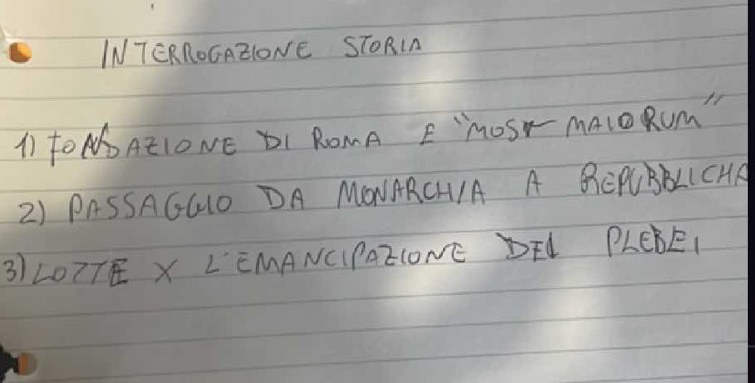 INTERROGAZIONE STORIA
1) FONDAZIONE DI ROMA E "MOS MAIORUM"
2) PASSAGGIO DA MONARCHIA A REPUBBLICHA
3) LOTTE X L'EMANCIPAZIONE DEI PLEBEI